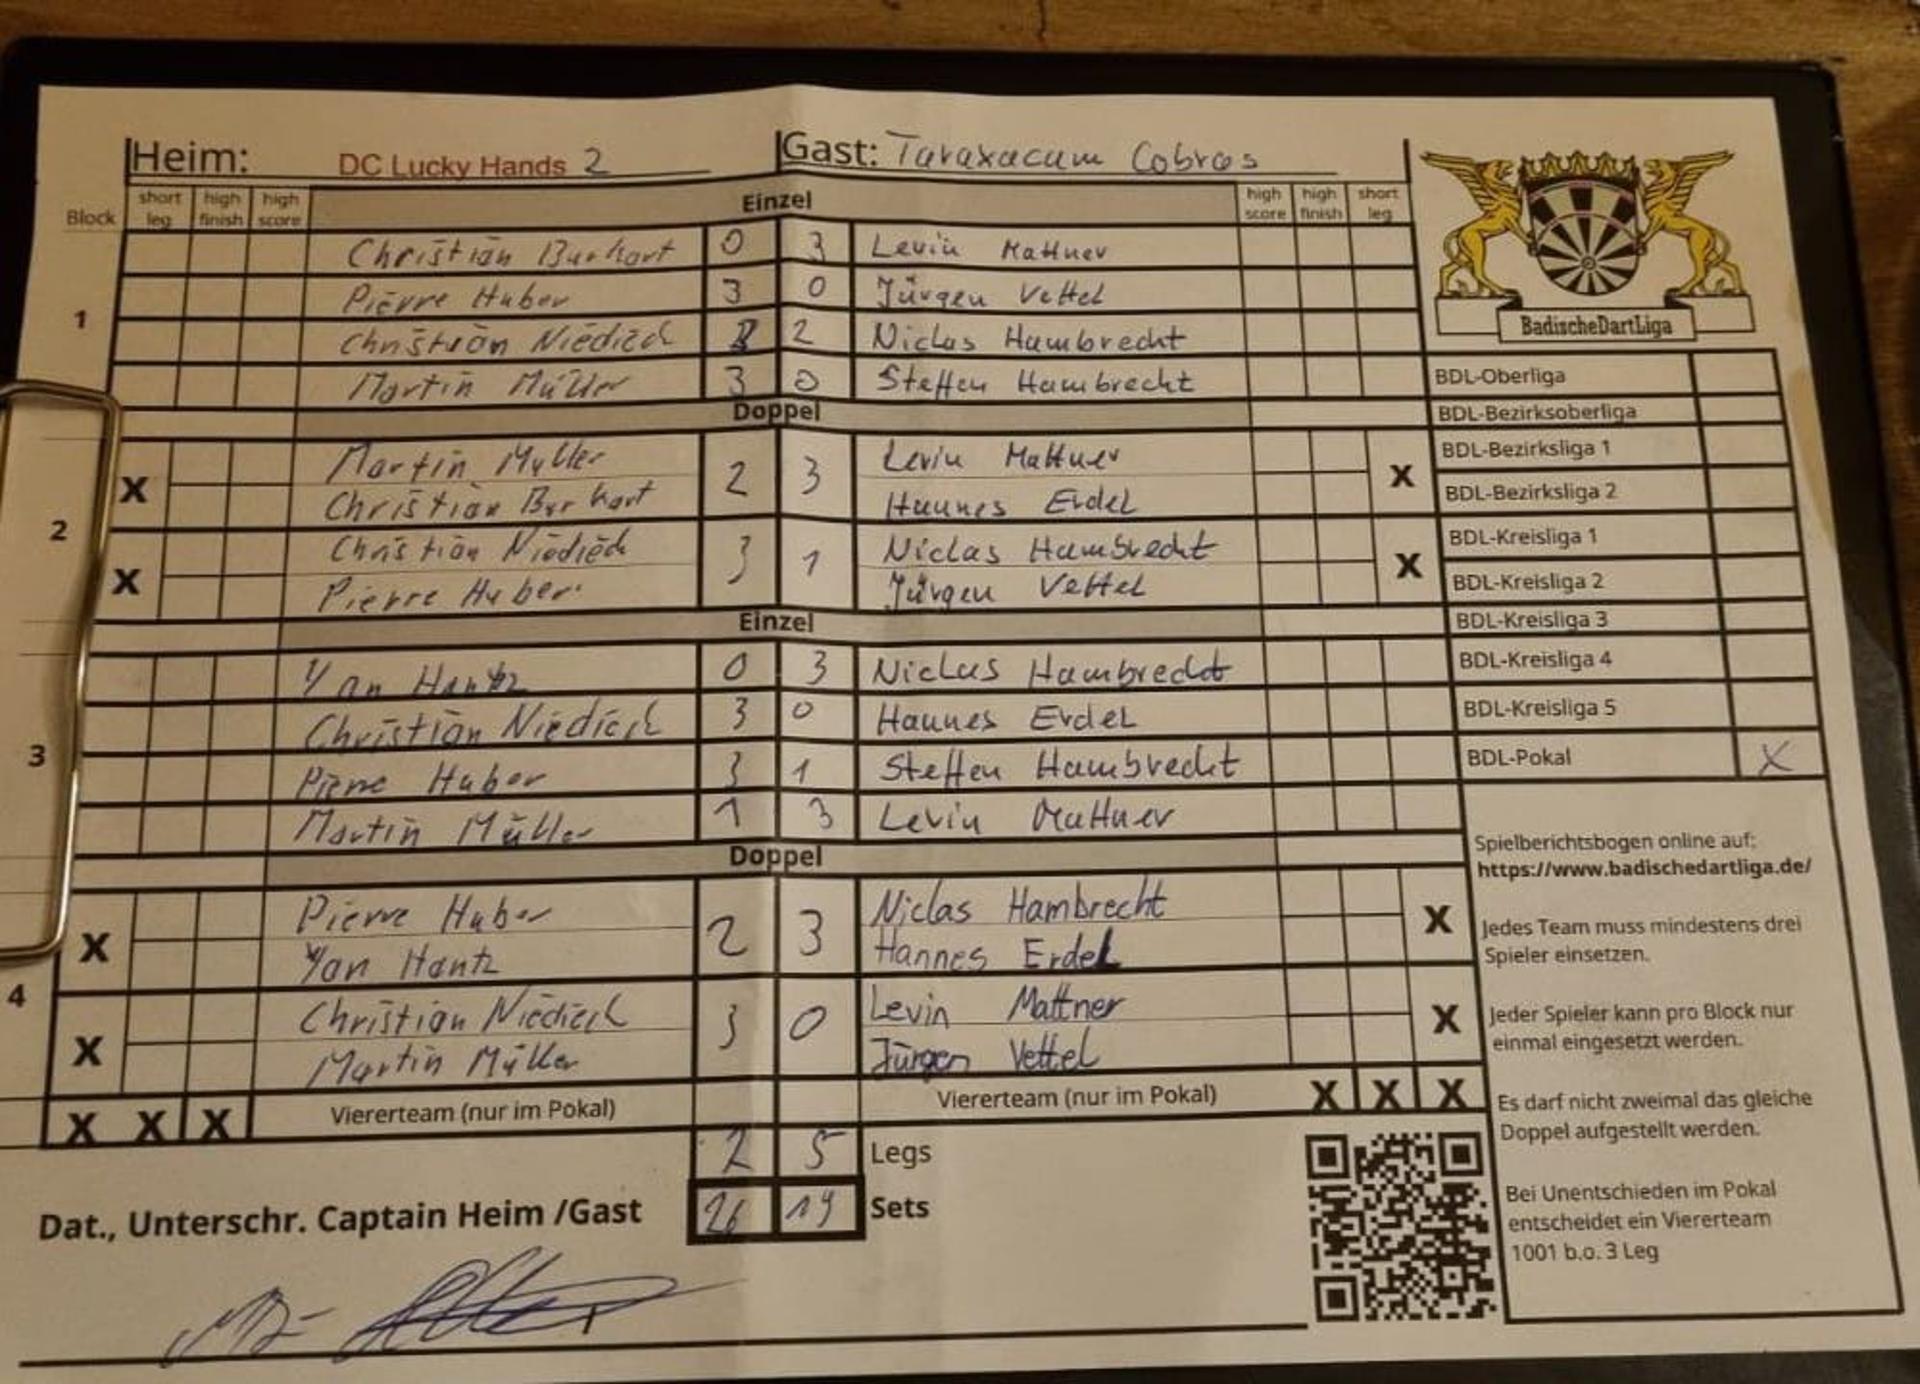 Heim: DC Lucky Hands 2 Gast: Taraxacum Cobras
Block short leg high finish high score Einzel high score high finish short leg
1
Christian Burkart 0 3 Levin Mattner
Pierre Huber 3 0 Jürgen Vettel
Christian Niedieck 2 Niclas Hambrecht
Martin Müller 3 0 Steffen Hambrecht
Doppel
2
X Martin Müller 2 3 Levin Mattner X
Christian Burkart Hannes Erdel
X Christian Niedieck 3 1 Niclas Hambrecht X
Pierre Huber Jürgen Vettel
Einzel
3
Yan Hantz 0 3 Niclas Hambrecht
Christian Niedieck 3 0 Hannes Erdel
Pierre Huber 3 1 Steffen Hambrecht
Martin Müller 1 3 Levin Mattner
Doppel
4
X Pierre Huber 2 3 Niclas Hambrecht X
Yan Hantz Hannes Erdel
X Christian Niedieck 3 0 Levin Mattner X
Martin Müller Jürgen Vettel
X X X Viererteam (nur im Pokal) Viererteam (nur im Pokal) X X X
5 Legs
26 19 Sets
Dat., Unterschr. Captain Heim /Gast
BadischeDartLiga
BDL-Oberliga
BDL-Bezirksoberliga
BDL-Bezirksliga 1
BDL-Bezirksliga 2
BDL-Kreisliga 1
BDL-Kreisliga 2
BDL-Kreisliga 3
BDL-Kreisliga 4
BDL-Kreisliga 5
BDL-Pokal X
Spielberichtsbogen online auf:
https://www.badischedartliga.de/
Jedes Team muss mindestens drei
Spieler einsetzen.
Jeder Spieler kann pro Block nur
einmal eingesetzt werden.
Es darf nicht zweimal das gleiche
Doppel aufgestellt werden.
Bei Unentschieden im Pokal
entscheidet ein Viererteam
1001 b.o. 3 Leg